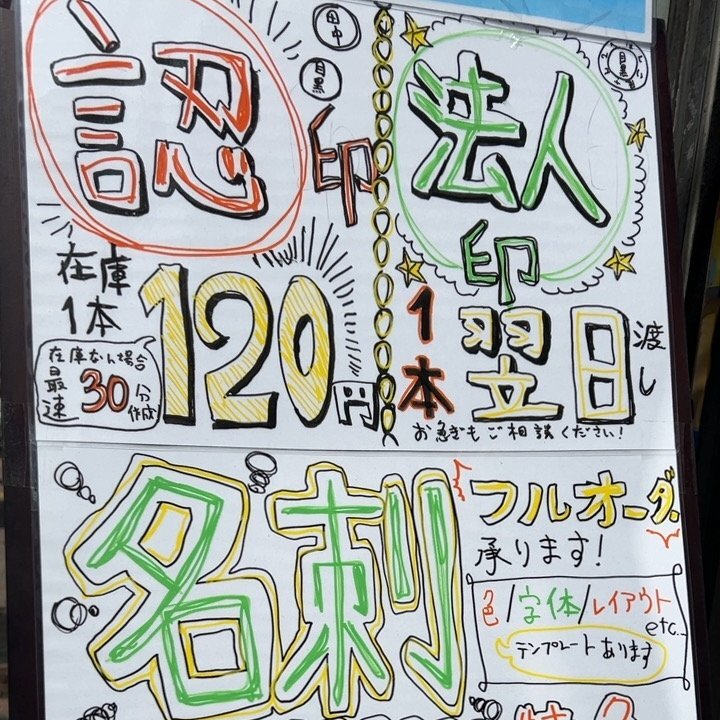 認印
田中
目黒
在庫
1本
120円
在庫ない場合
最速30分作成
法人印
1本
翌日渡し
お急ぎもご相談ください!
名刺
フルオーダー
承ります!
色/字体/レイアウト
etc...
テンプレートあります